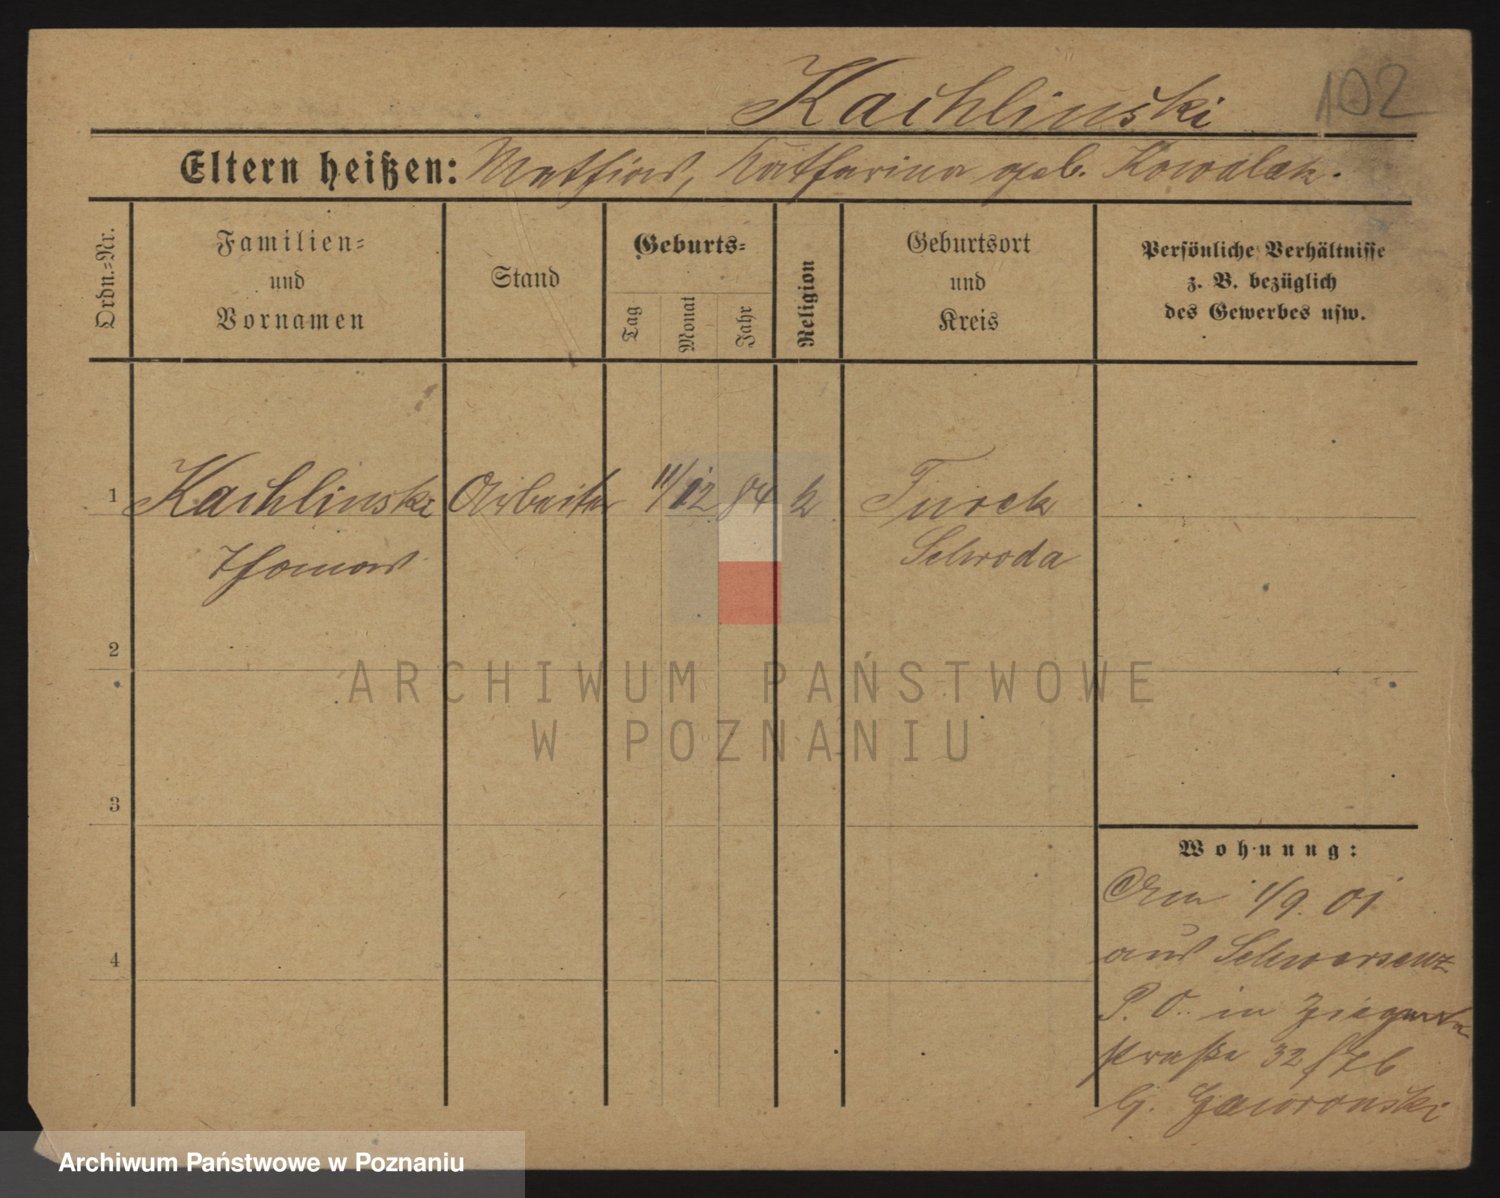 Kachlinski
102
Eltern heißen: Mathias, Katharina geb. Kowalak.
Ordn.-Nr.
Familien-
und
Vornamen
Stand
Geburts-
Tag
Monat
Jahr
Religion
Geburtsort
und
Kreis
Persönliche Verhältnisse
z. B. bezüglich
des Gewerbes usw.
1 Kachlinski Arbeiter 11/12 84 k Turek
Thomas Schroda
2
3
4
Wohnung:
Am 1/9. 01
aus Schwersenz
P. O. in
straße 32
G. Jaworonski
ARCHIWUM PAŃSTWOWE
W POZNANIU
Archiwum Państwowe w Poznaniu